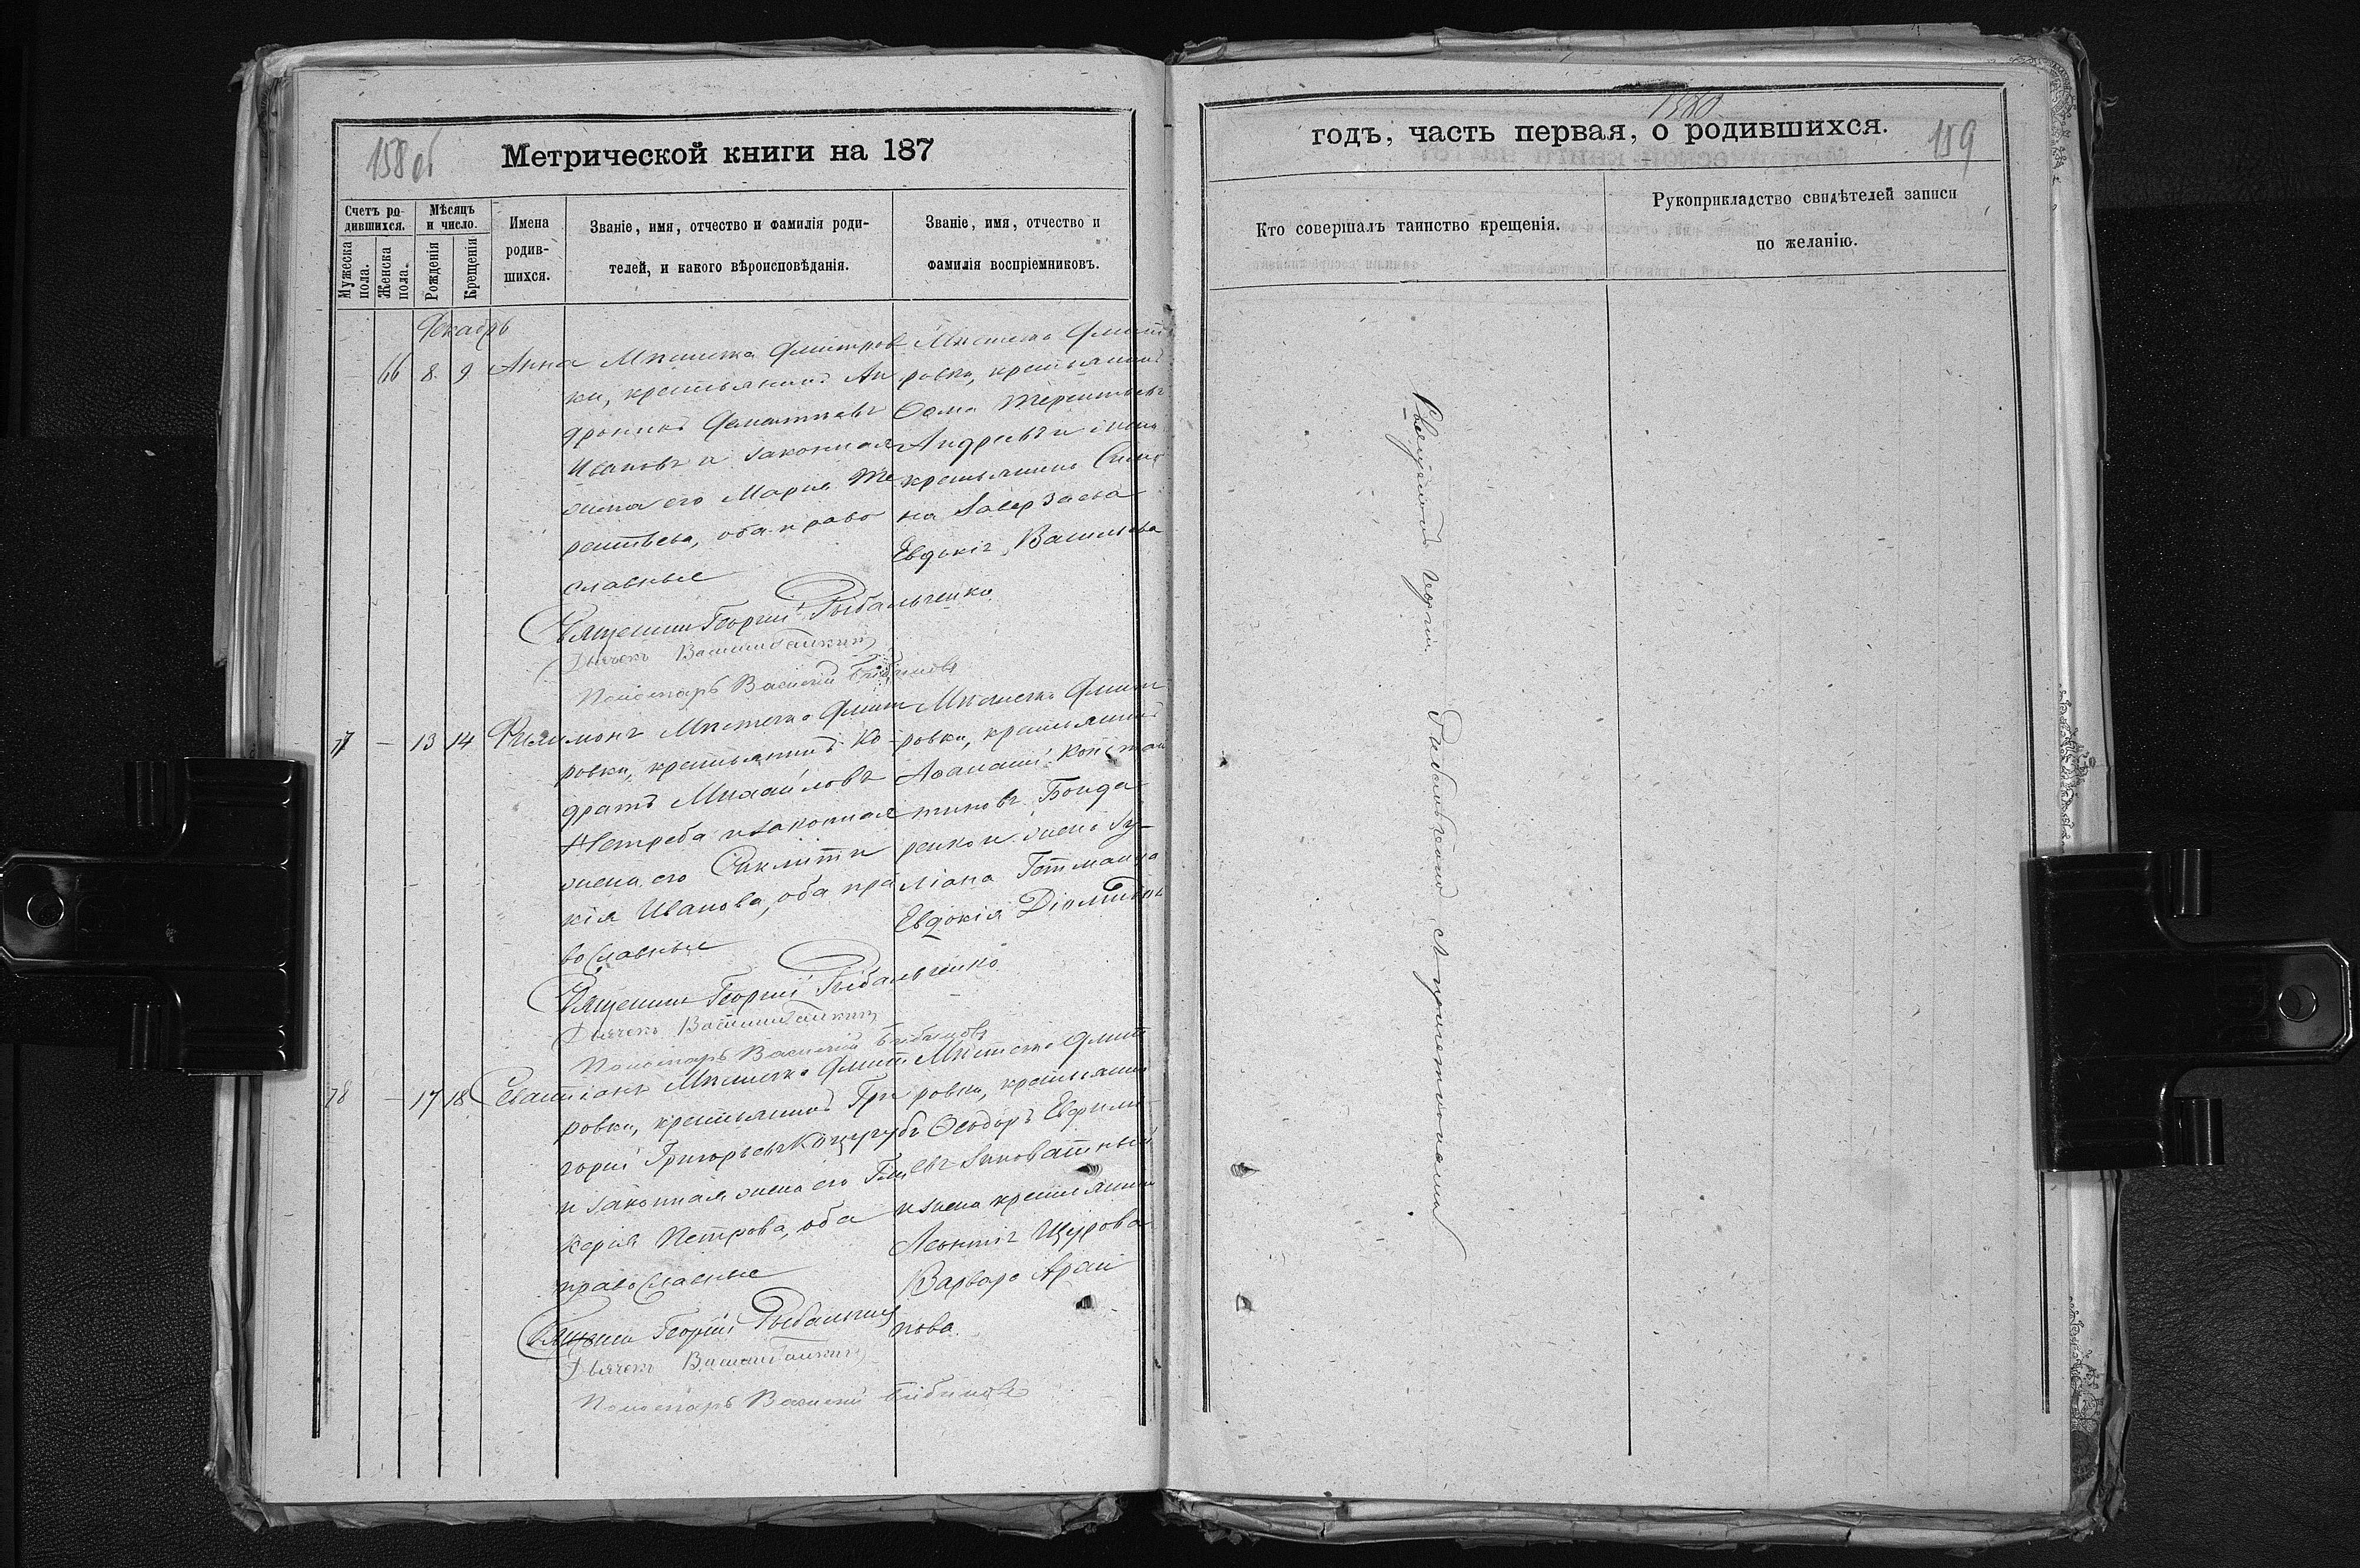 158 об
Метрической книги на 187
Счетъ ро-
дившихся.
Мужеска
пола.
Женска
пола.
Мѣсяцъ
и число.
Рожденія
Крещенія
Имена
родив-
шихся.
Званіе, имя, отчество и фамилія роди-
телей, и какого вѣроисповѣданія.
Званіе, имя, отчество и
фамилія воспріемниковъ.
Декабрь
— 66 8. 9 Анна
Мѣстечка Дмитров
ки, крестьянинъ Ан
Ивановъ и законная
жена его Марія Те
рентьева, оба право
славные
Мѣстечка Дмит
ровки, крестьянинъ
Ѳома Терентьевъ
Андреевъ и жена
крестьянина
Евдокія Васильева
Священникъ Георгій Рыбальченко
Дьячокъ Василій
Пономарь Василій Бибиковъ
77 — 13 14 Филимонъ
Мѣстечка Дмит
ровки, крестьянинъ Ко
дратъ Михайловъ
Нетреба и законная
жена его Синклити
кія Иванова, оба пра
вославные
Мѣстечка Дмит
ровки, крестьянинъ
Аѳанасій Констан
тиновъ Бонда
ренко и жена Іу
ліана Гетмана
Евдокія Діомидова
Священникъ Георгій Рыбальченко
Дьячокъ Василій
Пономарь Василій Бибиковъ
78 — 17 18 Севастіанъ
Мѣстечка Дмит
ровки, крестьянинъ Гри
горій Григорьевъ Коцугубъ
и законная жена его Гли
керія Петрова, оба
православные
Мѣстечка Дмит
ровки, крестьянинъ
Ѳеодоръ Евфимі
евъ Зиноватный
и жена крестьянина
Леонтія Щурова
Варвара Архи
пова
Священникъ Георгій Рыбальченко
Дьячокъ Василій
Пономарь Василій Бибиковъ
1880.
годъ, часть первая, о родившихся.
159
Кто совершалъ таинство крещенія.
Рукоприкладство свидѣтелей записи
по желанію.
Священникъ Георгій Рыбальченко съ причетниками